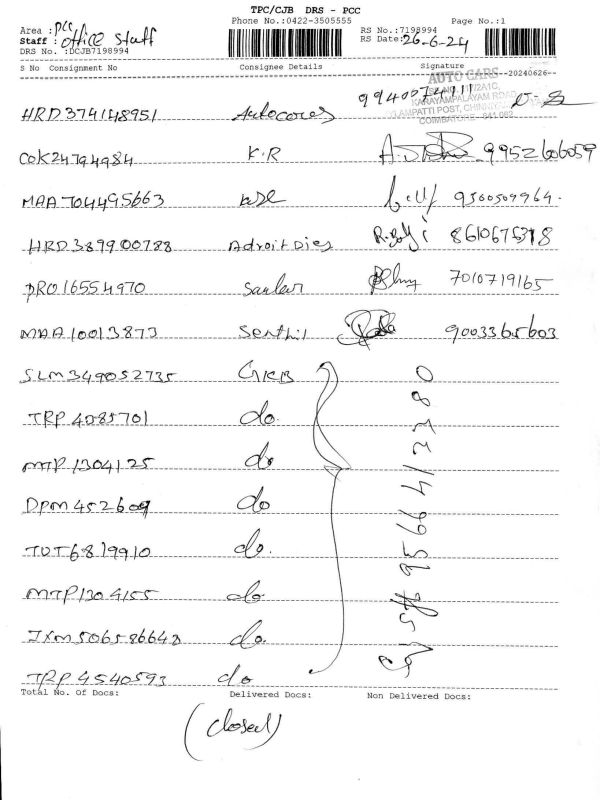 TPC/CJB DRS - PCC
Phone No.:0422-3505555 Page No.:1
Area : PCC
Staff : office staff
DRS No. :DCJB7198994
RS No.:7198994
RS Date:26-6-24
S No Consignment No Consignee Details Signature --20240626--
AUTO CARS
KARAYAMPALAYAM ROAD
COIMBATORE
HRD374148951 Autocores 9940074111
COK24794984 K.R 9952606059
MAA704495663 9500509964.
HRD389900788 Adroit Dies R.Balaji 8610675318
PRO16554970 7010719165
MAA10013873 Senthil 9003365603
SLM349052735 GKB
TRP4085701 do
MTP1304125 do
DPM452609 do
TUT6819910 do.
MTP1304155 do
JXM506586642 do.
TRP4540593 do
9566413380
Total No. Of Docs: Delivered Docs: Non Delivered Docs:
(closed)